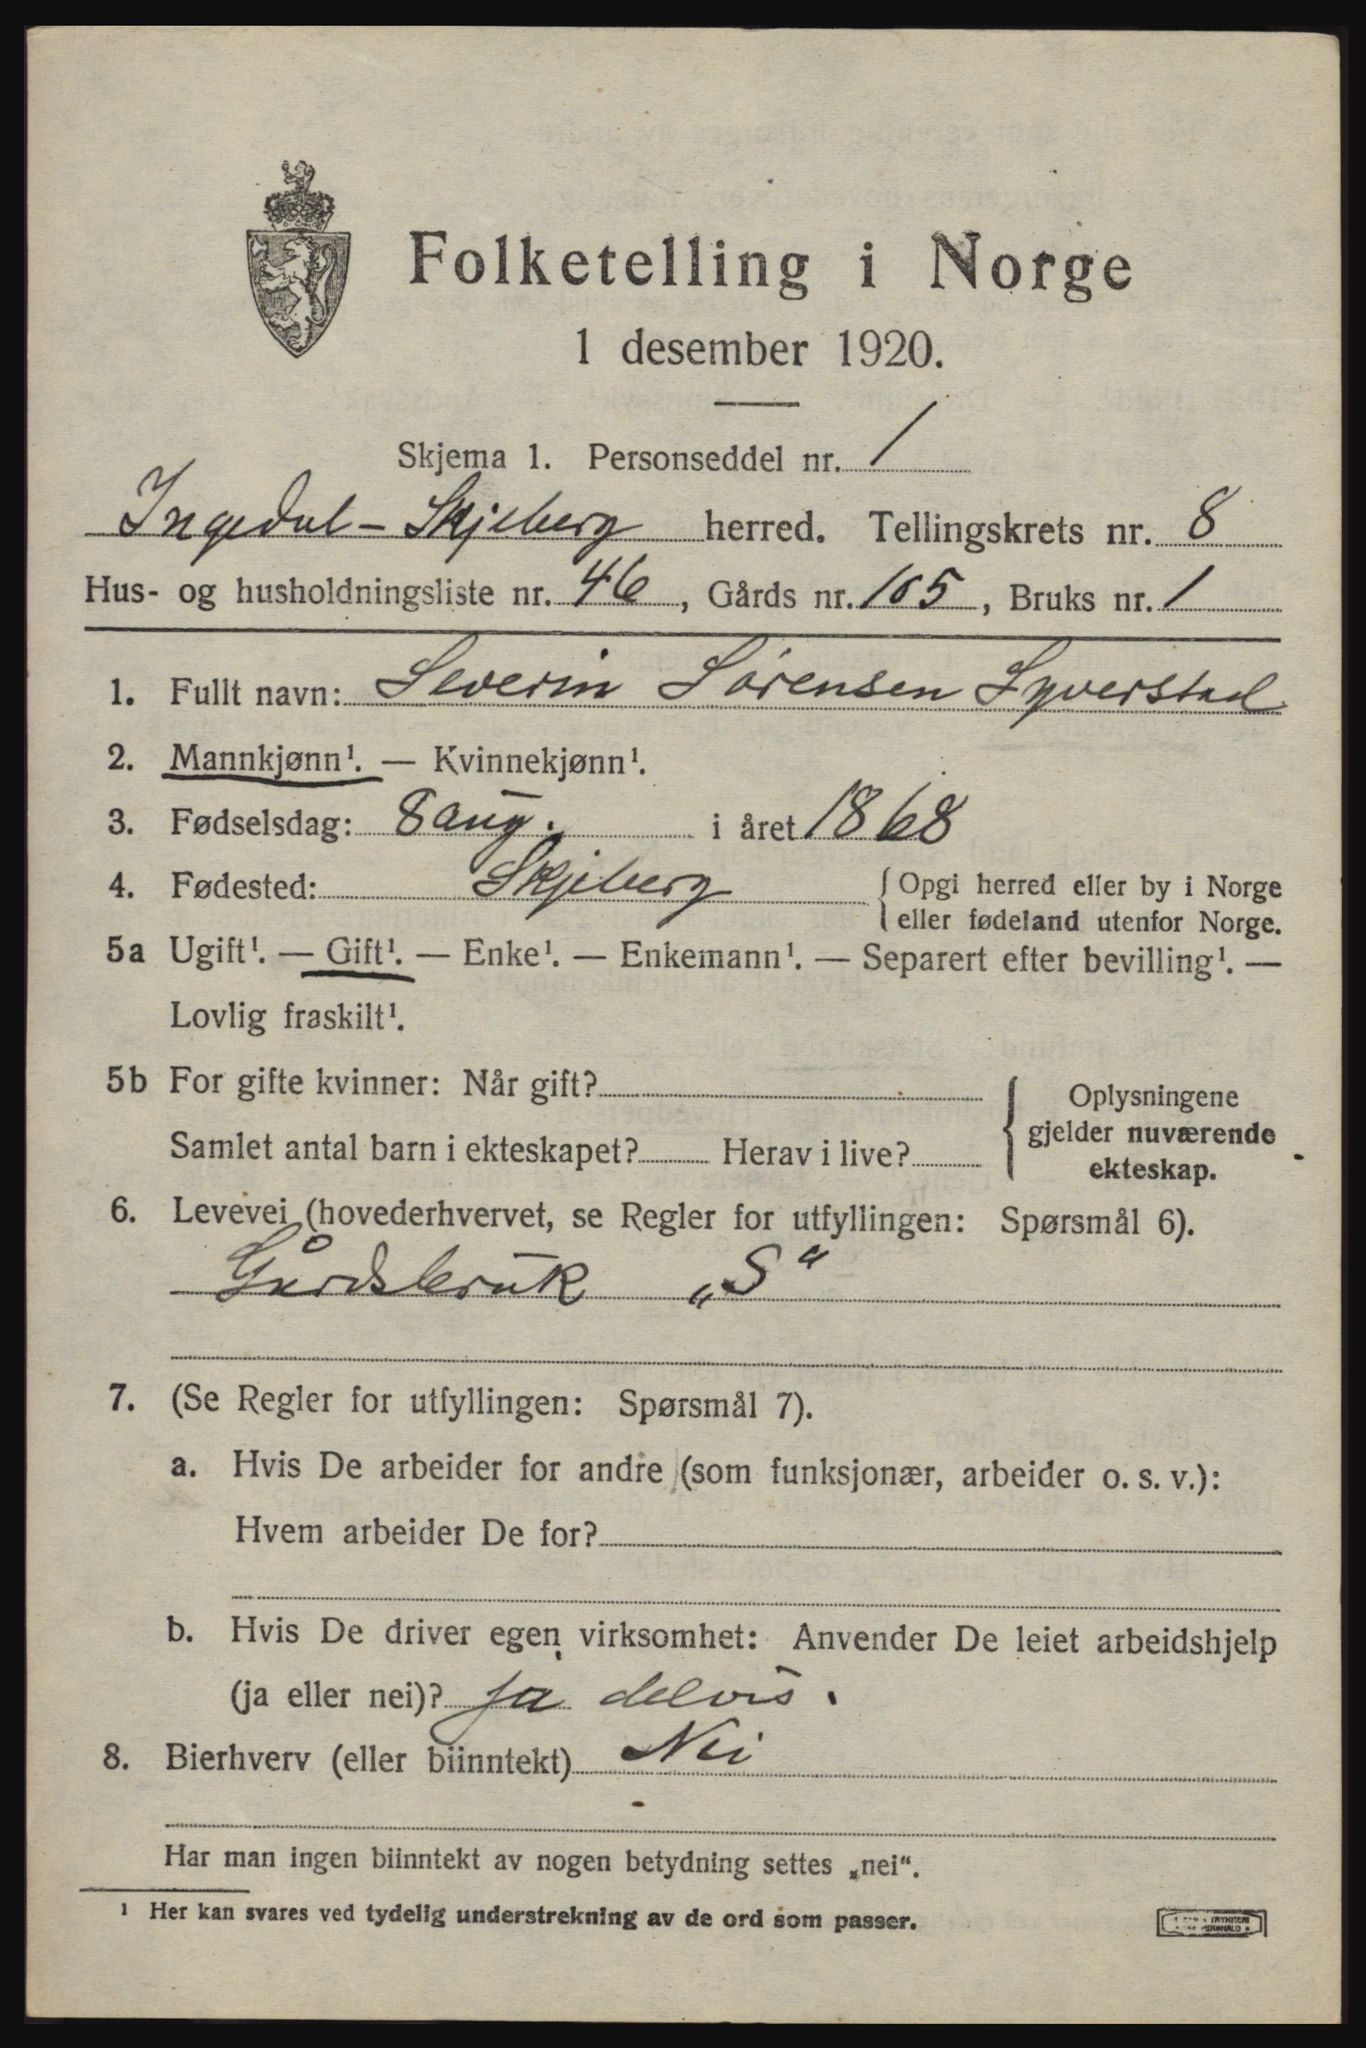 Folketelling i Norge
1 desember 1920.
Skjema 1. Personseddel nr. 1
Ingedal - Skjeberg herred. Tellingskrets nr. 8
Hus- og husholdningsliste nr. 46, Gårds nr. 105, Bruks nr. 1
1. Fullt navn: Severin Sørensen Syverstad
2. Mannkjønn¹. — Kvinnekjønn¹.
3. Fødselsdag: 8 aug. i året 1868
4. Fødested: Skjeberg { Opgi herred eller by i Norge
eller fødeland utenfor Norge.
5a Ugift¹. — Gift¹. — Enke¹. — Enkemann¹. — Separert efter bevilling¹. —
Lovlig fraskilt¹.
5b For gifte kvinner: Når gift? { Oplysningene
gjelder nuværende
Samlet antal barn i ekteskapet? Herav i live?
ekteskap.
6. Levevei (hovederhvervet, se Regler for utfyllingen: Spørsmål 6).
Gårdsbruk „S“
7. (Se Regler for utfyllingen: Spørsmål 7).
a. Hvis De arbeider for andre (som funksjonær, arbeider o. s. v.):
Hvem arbeider De for?
b. Hvis De driver egen virksomhet: Anvender De leiet arbeidshjelp
(ja eller nei)? ja delvis.
8. Bierhverv (eller biinntekt) Nei
Har man ingen biinntekt av nogen betydning settes „nei“.
¹ Her kan svares ved tydelig understrekning av de ord som passer.